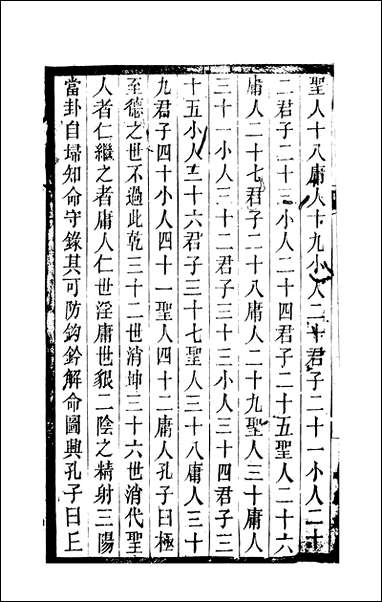 聖人十八庸人十九小人二十君子二十一小人二十
二君子二十三小人二十四君子二十五聖人二十六
庸人二十七君子二十八庸人二十九聖人三十庸人
三十一小人三十二君子三十三小人三十四君子三
十五小人三十六君子三十七聖人三十八庸人三十
九君子四十小人四十一聖人四十二庸人孔子曰極
至德之世不過此乾三十二世消坤三十六世消代聖
人者仁繼之者庸人仁世淫庸世貇二陰之精射三陽
當卦自埽知命守錄其可防鈞鈐解命圖興孔子曰丘